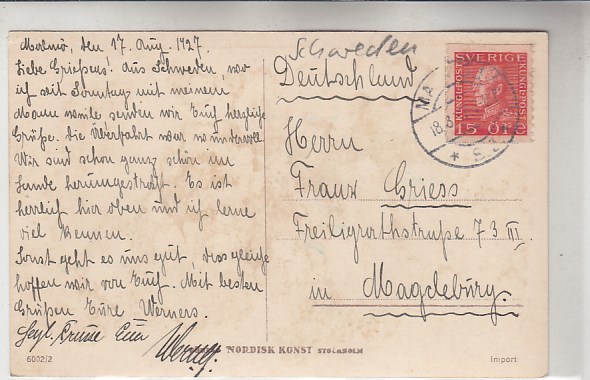 Malmö, den 17. Aug. 1927.
Liebe Griessens! Aus Schweden, wo
ich seit Sonntag mit meinem
Manne weile senden wir Euch herzliche
Grüße. Die Überfahrt war wundervoll.
Wir sind schon ganz schön im
Lande herumgestrolft. Es ist
herrlich hier oben und ich lerne
viel kennen.
Sonst geht es uns gut, dasgleiche
hoffen wir von Euch. Mit besten
Grüßen Eure Werners.
Herzl. Grüße Euer
Werner.
Schweden
Deutschland
Herrn
Franz Griess
Freiligrathstraße 73 III.
in Magdeburg.
SVERIGE
KUNGL·POST
KUNGL·POST
15 ÖRE
18.8
NORDISK KONST STOCKHOLM
6002/2
Import